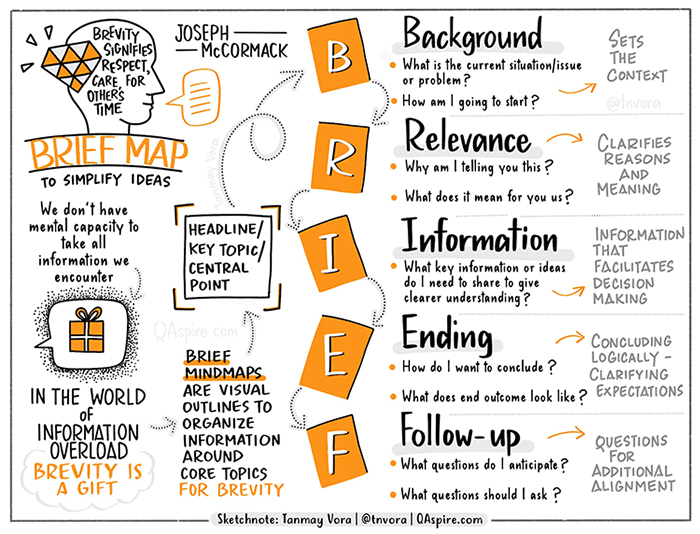 BREVITY
SIGNIFIES
RESPECT,
CARE, FOR
OTHER'S
TIME
JOSEPH
McCORMACK
BRIEF MAP
TO SIMPLIFY IDEAS
We don't have
mental capacity to
take all
information we
encounter
IN THE WORLD
of
INFORMATION
OVERLOAD
BREVITY IS
A GIFT
BRIEF
MINDMAPS
ARE VISUAL
OUTLINES TO
ORGANIZE
INFORMATION
AROUND
CORE TOPICS
FOR BREVITY
HEADLINE/
KEY TOPIC/
CENTRAL
POINT
Tanmay Vora
QAspire.com
B
Background
What is the current situation/issue
or problem?
How am I going to start?
SETS
THE
CONTEXT
@tnvora
R
Relevance
Why am I telling you this?
What does it mean for you us?
CLARIFIES
REASONS
AND
MEANING
I
Information
What key information or ideas
do I need to share to give
clearer understanding?
INFORMATION
THAT
FACILITATES
DECISION
MAKING
E
Ending
How do I want to conclude?
What does end outcome look like?
CONCLUDING
LOGICALLY -
CLARIFYING
EXPECTATIONS
F
Follow-up
What questions do I anticipate?
What questions should I ask?
QUESTIONS
FOR
ADDITIONAL
ALIGNMENT
Sketchnote: Tanmay Vora | @tnvora | QAspire.com